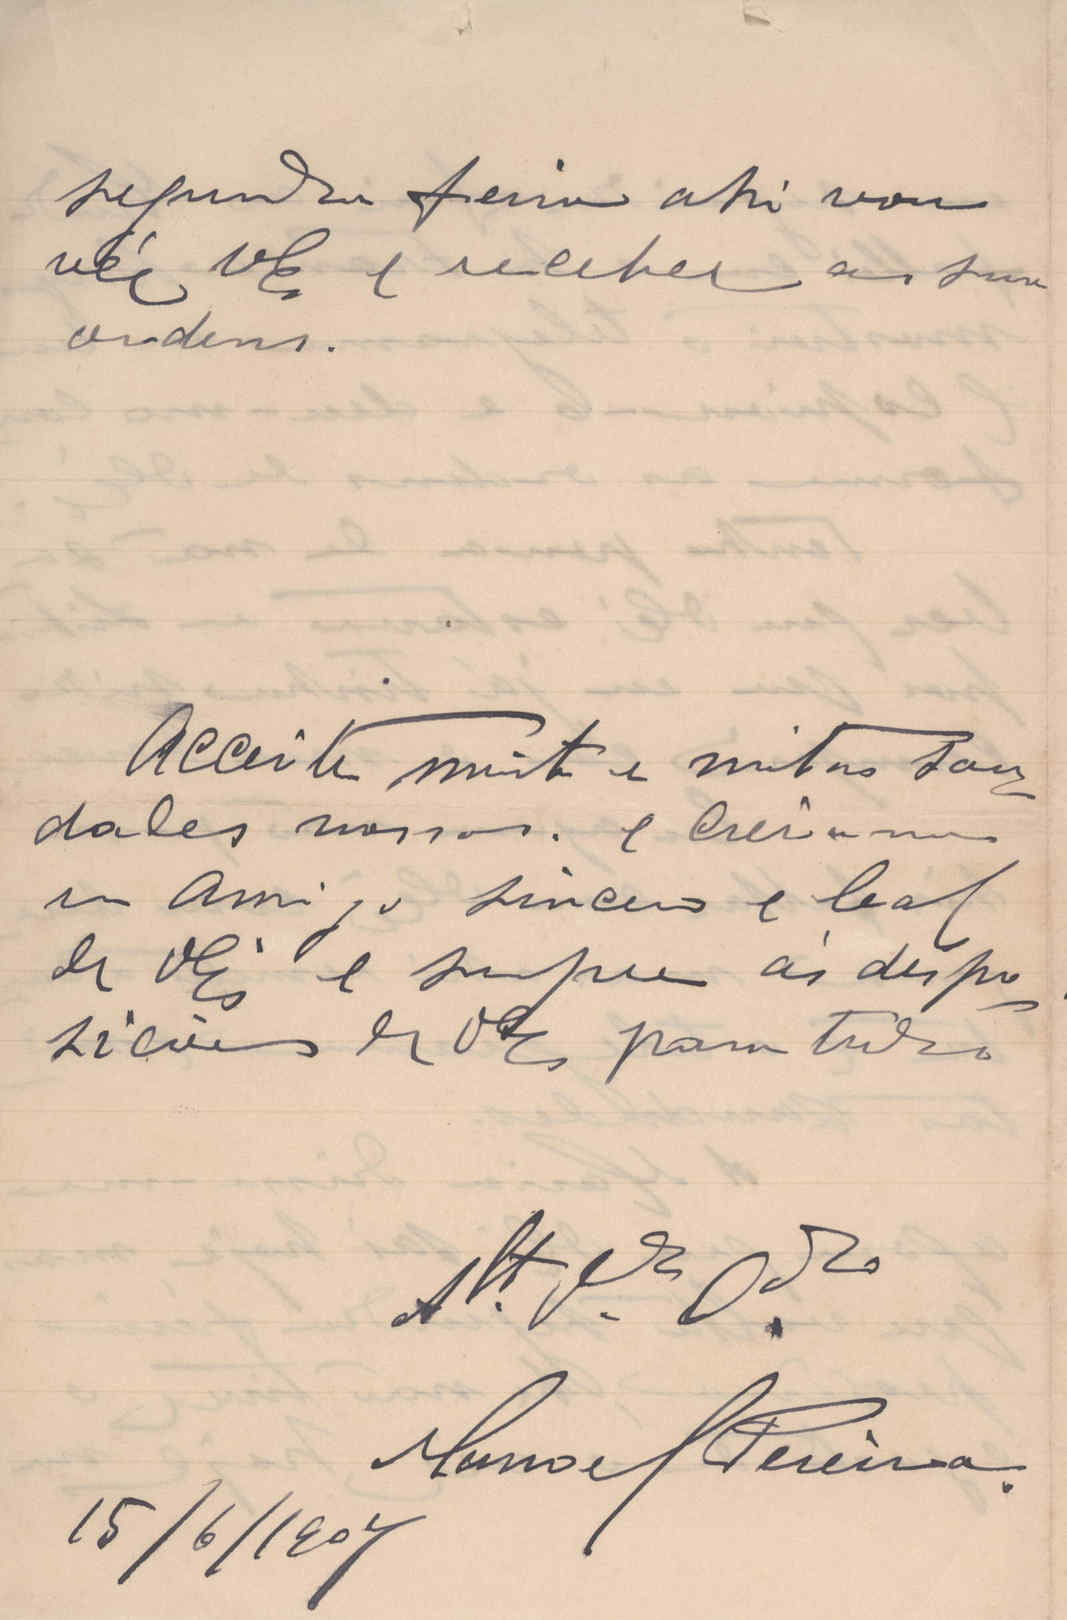 segunda feira ahi vou
vêr VEx e receber as suas
ordens.
Acceite muito e muitas sau
dades nossas. e creia-me
um amigo sincero e leal
de VExs e sempre ás dispo
sicões de VExs para tudo
Att. Vdr Obdo
Manoel Pereira.
15/6/1907